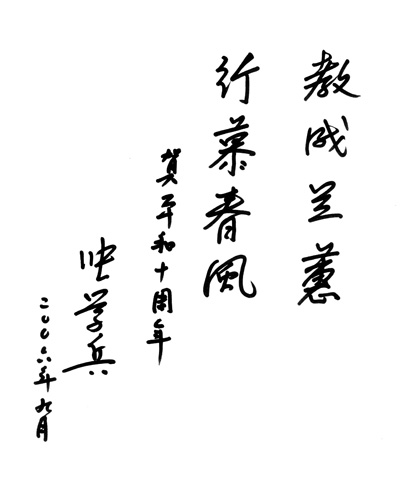 教成兰蕙
行慕春風
賀平和十周年
学兵
二〇〇六年九月